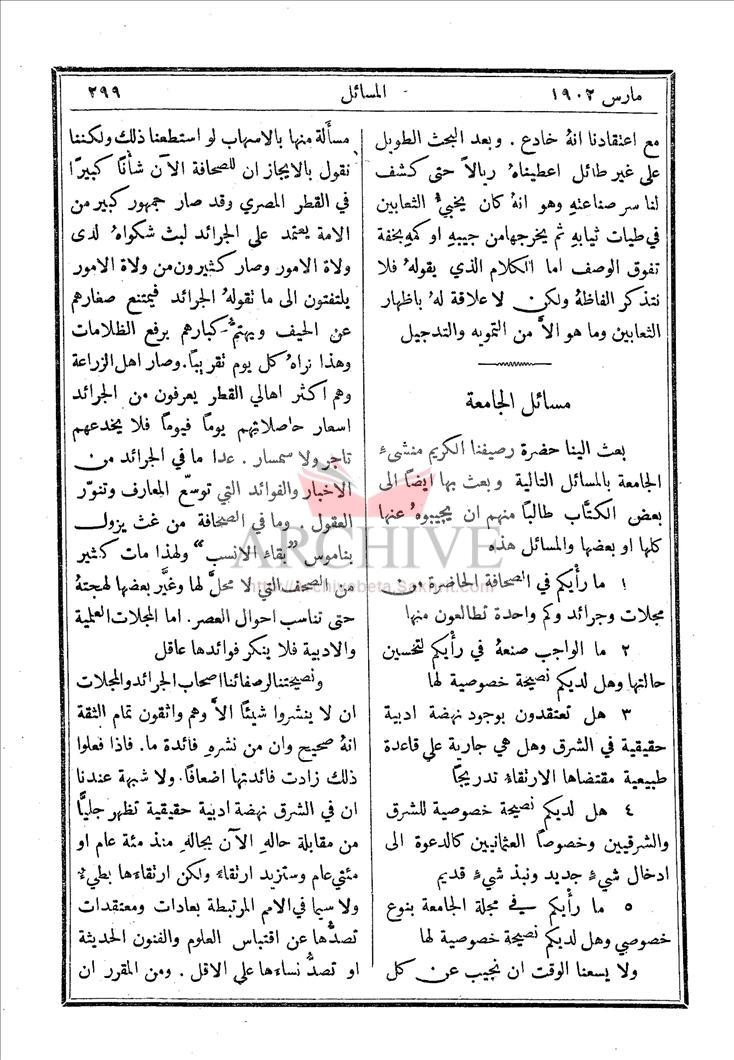 مارس ١٩٠٢
المسائل
٢٩٩
مع اعتقادنا انهُ خادع . وبعد البحث الطويل
على غير طائل اعطيناهُ ريالاً حتى كشف
لنا سر صناعتهِ وهو انهُ كان يخبيُّ الثعابين
في طيات ثيابهِ ثم يخرجها من جيبهِ او كمهِ بخفة
تفوق الوصف اما الكلام الذي يقولهُ فلا
نتذكر الفاظهُ ولكن لا علاقة لهُ باظهار
الثعابين وما هو الاَّ من التمويه والتدجيل
مسائل الجامعة
بعث الينا حضرة رصيفنا الكريم منشيء
الجامعة بالمسائل التالية وبعث بها ايضاً الى
بعض الكتَّاب طالباً منهم ان يجيبوهُ عنها
كلها او بعضها والمسائل هذه
١ ما رأيكم في الصحافة الحاضرة من
مجلات وجرائد وكم واحدة تطالعون منها
٢ ما الواجب صنعهُ في رأيكم لتحسين
حالتها وهل لديكم نصيحة خصوصية لها
٣ هل تعتقدون بوجود نهضة ادبية
حقيقية في الشرق وهل هي جارية على قاعدة
طبيعية مقتضاها الارتقاء تدريجاً
٤ هل لديكم نصيحة خصوصية للشرق
والشرقيين وخصوصاً العثمانيين كالدعوة الى
ادخال شيءٍ جديد ونبذ شيءٍ قديم
٥ ما رأيكم في مجلة الجامعة بنوع
خصوصي وهل لديكم نصيحة خصوصية لها
ولا يسعنا الوقت ان نجيب عن كل
مسأَلة منها بالاسهاب لو استطعنا ذلك ولكننا
نقول بالايجاز ان للصحافة الآن شأناً كبيراً
في القطر المصري وقد صار جمهور كبير من
الامة يعتمد على الجرائد لبث شكواهُ لدى
ولاة الامور وصار كثيرون من ولاة الامور
يلتفتون الى ما تقولهُ الجرائد فيمتنع صغارهم
عن الحيف ويهتمُّ كبارهم برفع الظلامات
وهذا نراهُ كل يوم تقريباً. وصار اهل الزراعة
وهم اكثر اهالي القطر يعرفون من الجرائد
اسعار حاصلاتهم يوماً فيوماً فلا يخدعهم
تاجر ولا سمسار . عدا ما في الجرائد من
الاخبار والفوائد التي توسّع المعارف وتنوّر
العقول . وما في الصحافة من غث يزول
بناموس "بقاء الانسب" ولهذا مات كثير
من الصحف التي لا محلَّ لها وغيَّر بعضها لهجتهُ
حتى تناسب احوال العصر. اما المجلات العلمية
والادبية فلا ينكر فوائدها عاقل
ونصيحتنا لرصفائنا اصحاب الجرائد والمجلات
ان لا ينشروا شيئاً الاَّ وهم واثقون تمام الثقة
انهُ صحيح وان من نشرهِ فائدة ما. فاذا فعلوا
ذلك زادت فائدتها اضعافاً. ولا شبهة عندنا
ان في الشرق نهضة ادبية حقيقية تظهر جليًّا
من مقابلة حالهِ الآن بحالهِ منذ مئة عام او
مئتي عام وستزيد ارتقاءً ولكن ارتقاءها بطيءٌ
ولا سيما في الامم المرتبطة بعادات ومعتقدات
تصدُّها عن اقتباس العلوم والفنون الحديثة
او تصدُّ نساءها على الاقل . ومن المقرر ان
ARCHIVE
http://Archivebeta.Sakhrit.com